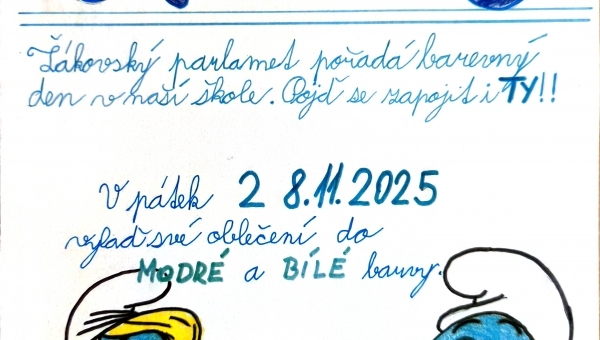 Žákovský parlamet pořádá barevný
den v naší škole. Pojď se zapojit i TY!!
V pátek 28.11.2025
vylaď své oblečení do
MODRÉ a BÍLÉ barvy.